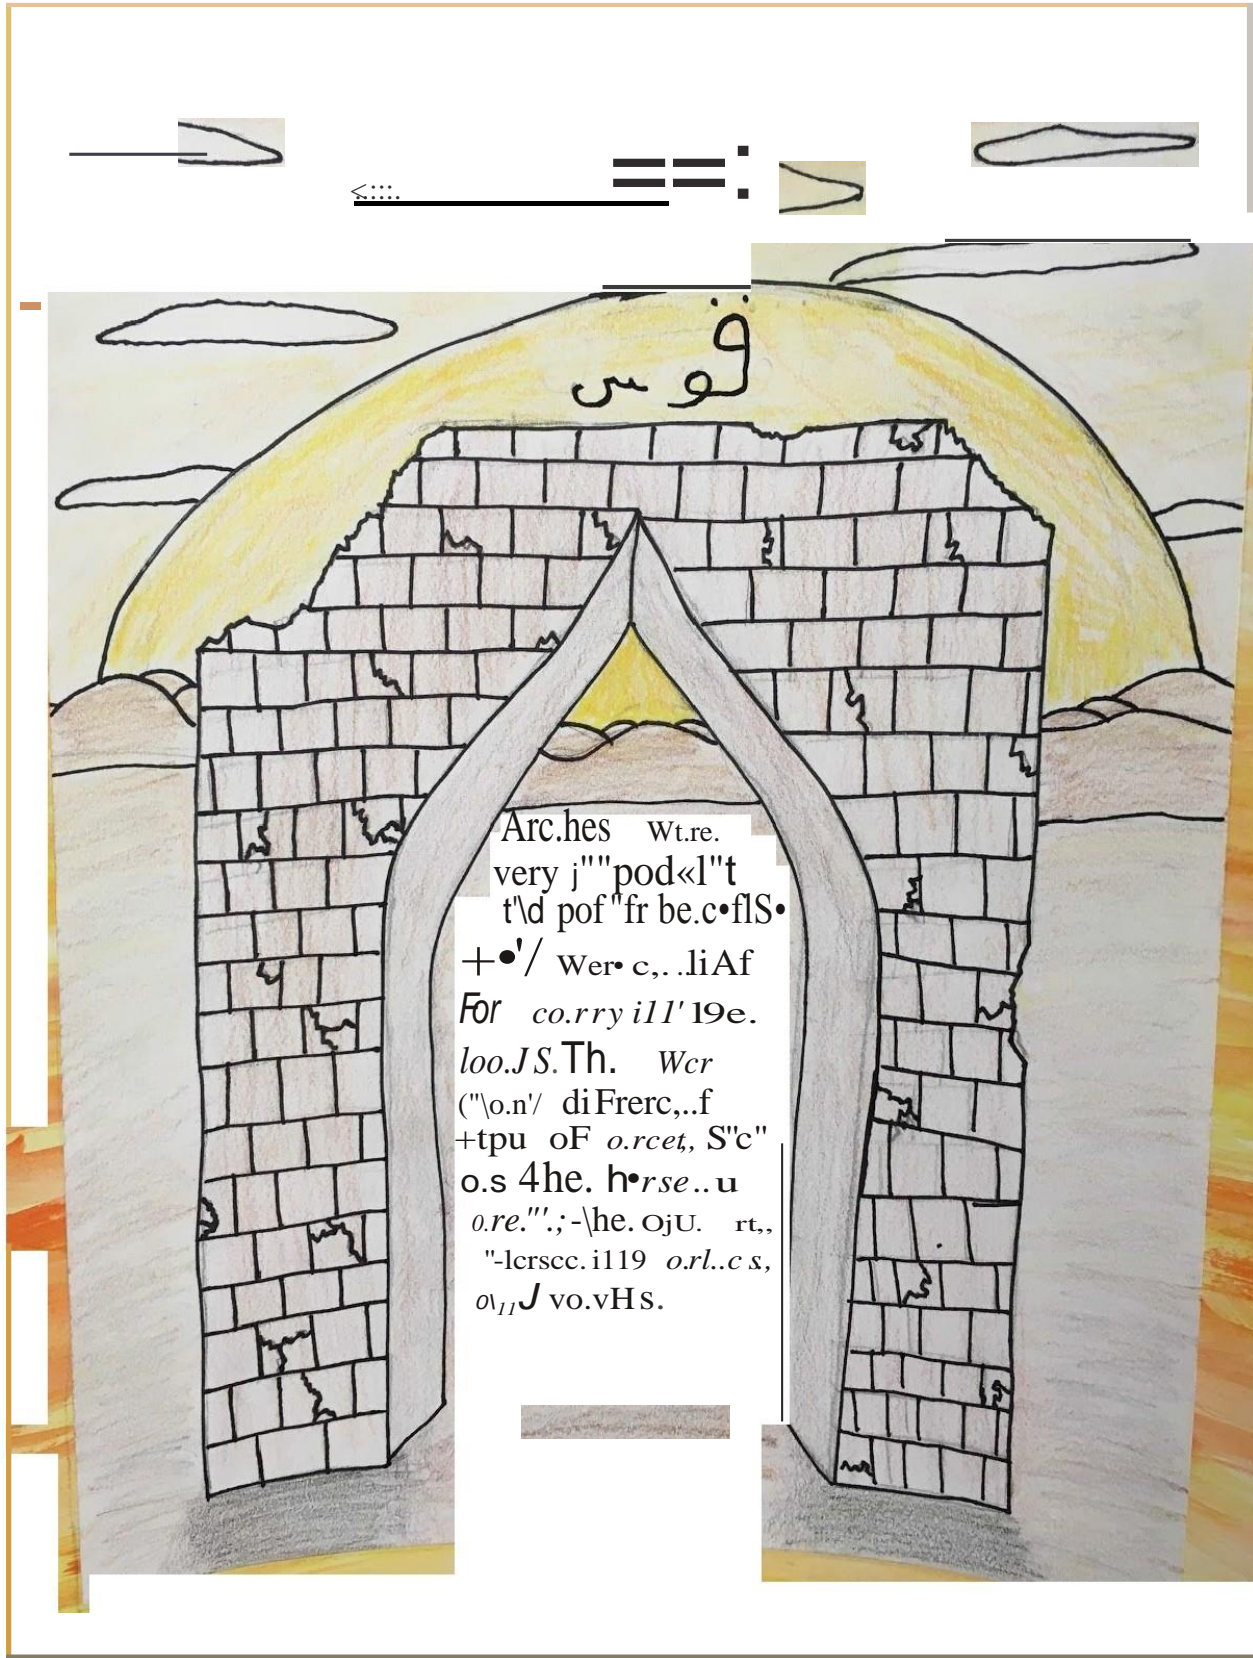 قوس
Arc.hes Wt.re.
very j""pod«l"t
t'\d pof"fr be.c•flS•
+•'/ Wer• c,. ..liAf
For co.rry i11' 19e.
loo.JS.Th. Wcr
("\o.n'/ diFrerc,..f
+tpu oF o.rcet,, S"c"
o.s 4he. h•rse..u
0.re."'.;-\he. OjU. rt,,
"-lcrscc.i119 o.rl..c s,
o\11J vo.vHs.